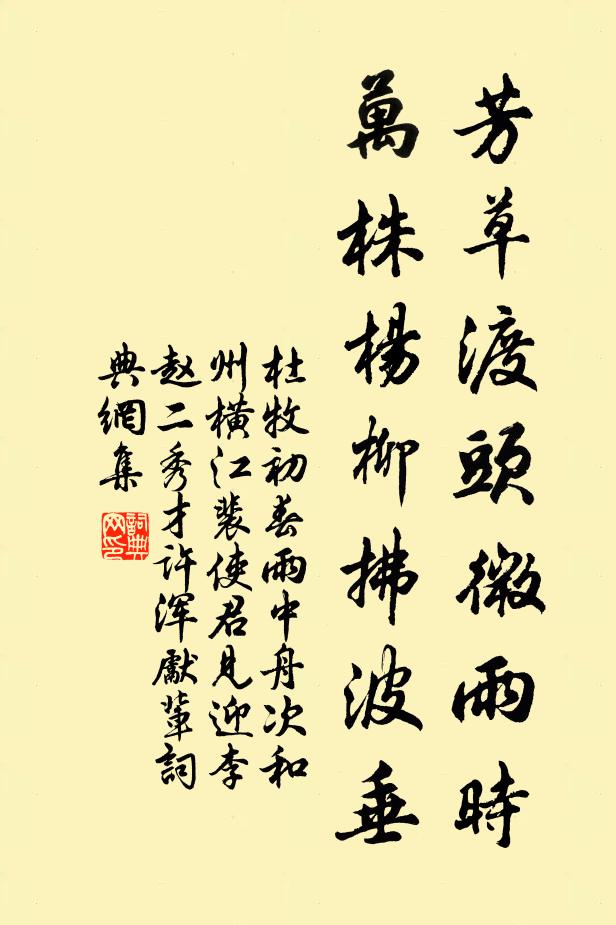 芳草渡頭微雨時
萬株楊柳拂波垂
杜牧初春雨中舟次和
州橫江裴使君見迎李
赵二秀才许浑獻軰詞
典網集
詞典网印